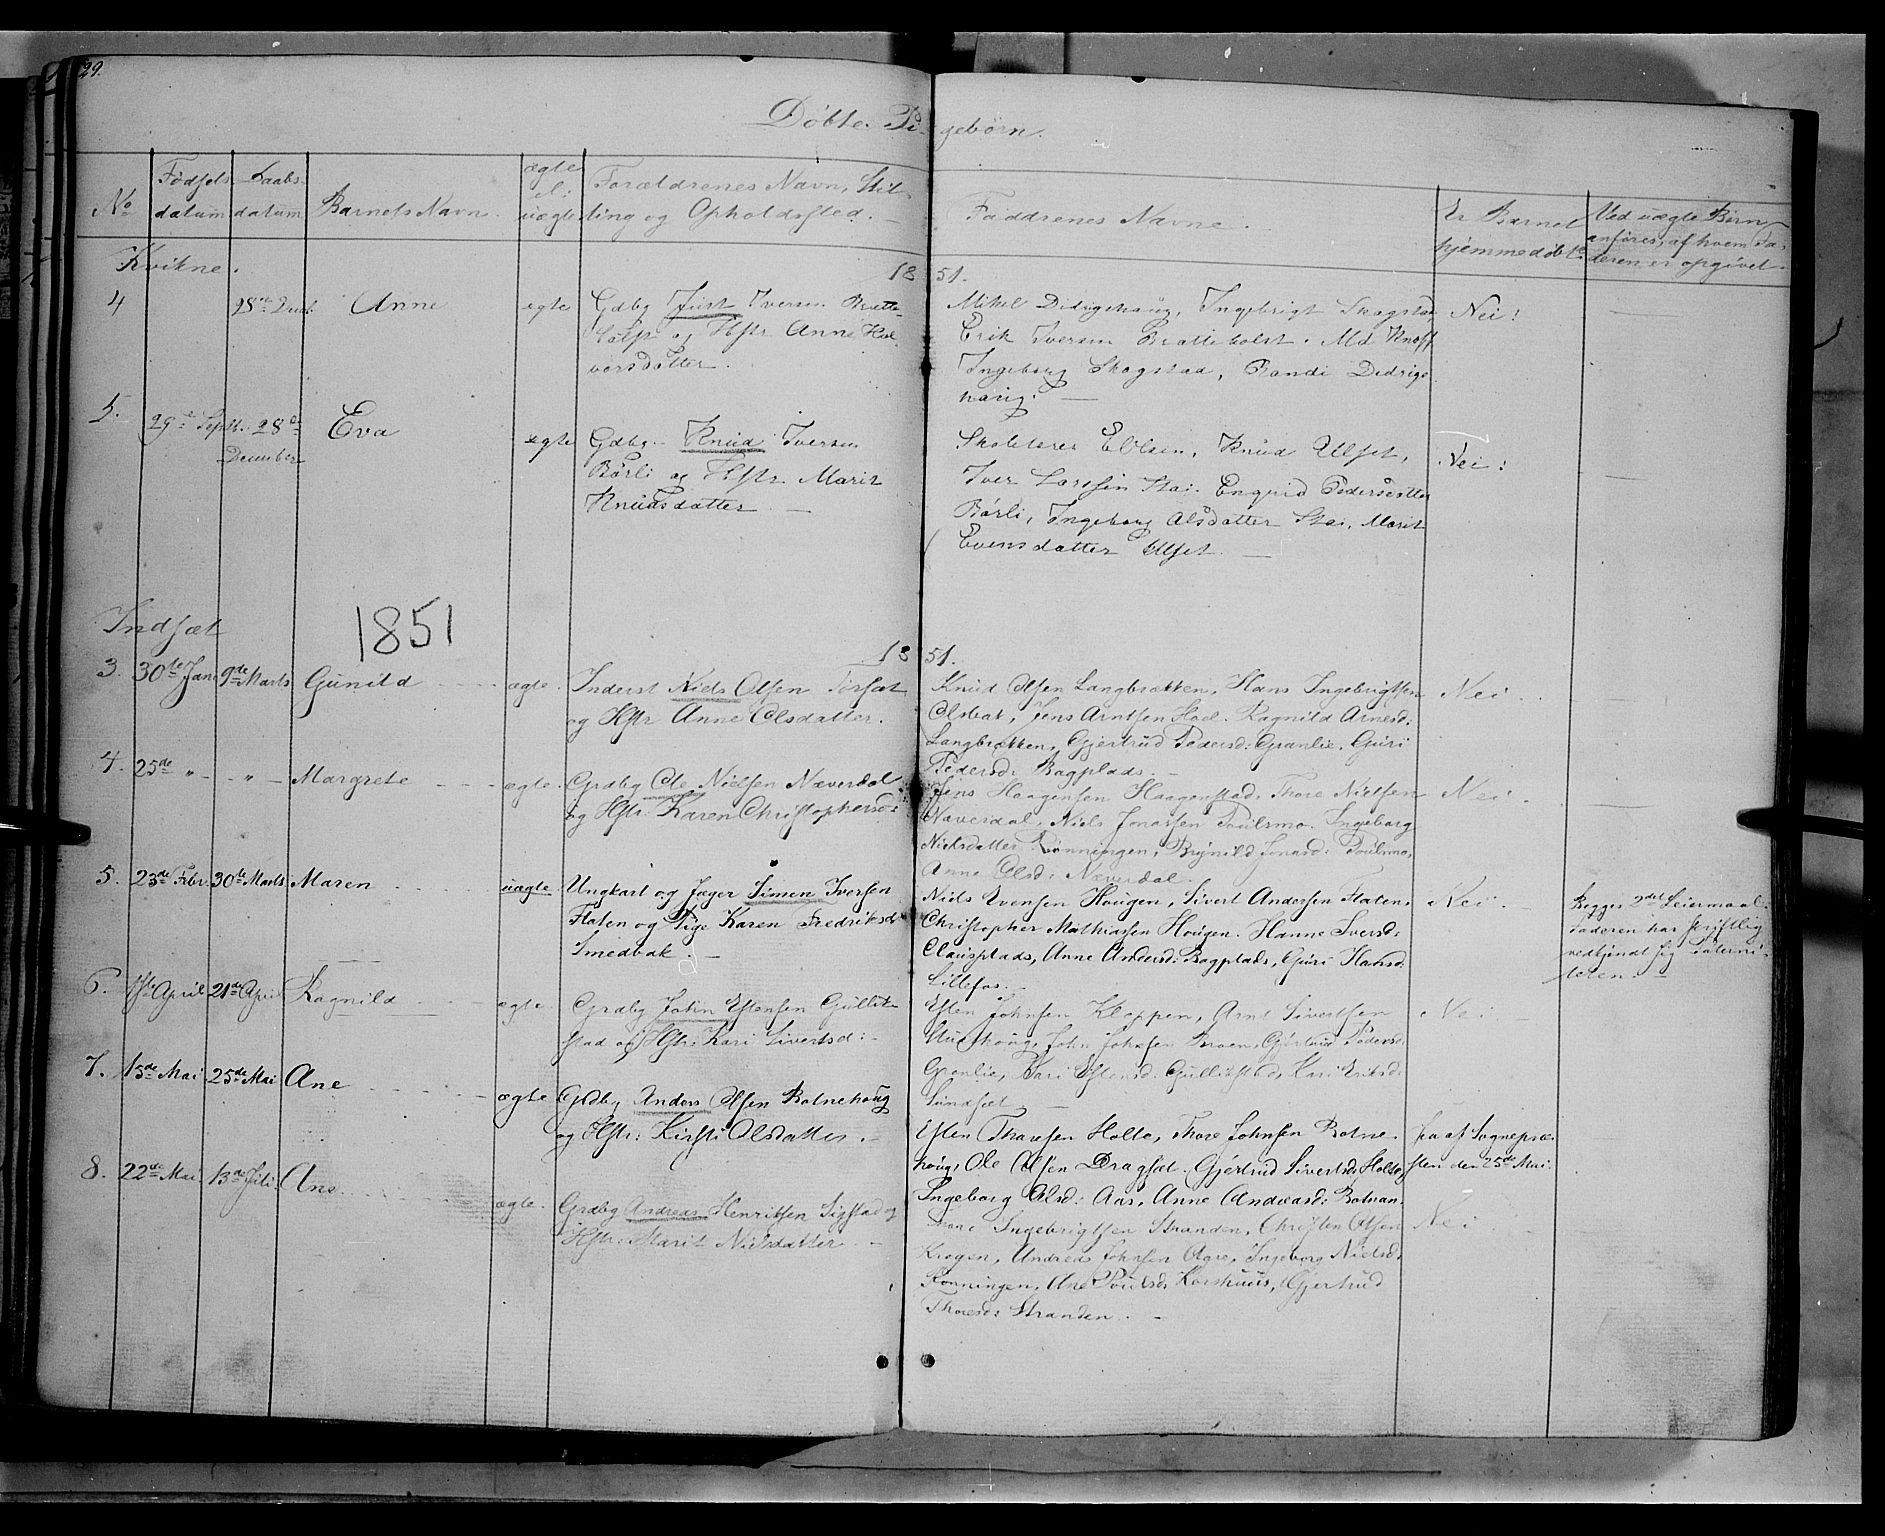 29.
Döbte Pigebörn.
No
Födsels datum
Daabs datum
Barnets Navn.
ægte el. uægte
Forældrenes Navn, Stilling og Opholdssted.
Faddrenes Navne.
Er Barnet hjemmedöbt.
Ved uægte Börn anföres, af hvem Faderen er opgivet.
Kvikne. 1851.
4 28de Decb. Anne egte Gdbg Just Iversen Bratte-
holst og Hstr Anne Hal-
vorsdatter.
Mikel Didrigshaug, Ingebrigt Skogstad,
Erik Iversen Bratteholst. Md Knoff
Ingeborg Skogstad, Randi Dedrigs-
haug.
Nei:
5. 29de Septb. 28de December Eva egte Gdbg. Knud Iversen
Börli og Hstr Marit
Knudsdatter.
Skolelærer Ebsen, Knud Ulset,
Iver Larssen Stai. Engrid Pedersdtter
Börli, Ingeborg Olsdatter Stai, Marit
Evensdatter Ulset.
Nei:
Indset
1851
1851.
3. 30te Jan 9de Marts Gunild ægte. Inderst Niels Olsen Torsæt
og Hstr Anne Olsdatter.
Knud Olsen Langbrækken, Hans Ingebrigtsen
Olsbak, Jens Arntsen Hoel. Ragnild Arnesd:
Langbrækken, Gjertrud Pedersd: Granlie, Guri
Pedersd: Bagplads.
Nei.
4. 25de " " Margrete ægte. Grdbg Ole Nielsen Næverdal
og Hstr: Karen Christophersd:
Jens Haagensen Haagenstad, Thore Nielsen
Næverdal, Niels Jonassen Poulsmo. Ingeborg
Nielsdatter Rönningen, Brynild Jonasd: Poulsmo,
Anne Olsd: Næverdal.
Nei.
5. 23de Febr. 30te Marts Maren uægte Ungkarl og Jæger Simen Iversen
Floten og Pige Karen Fredriksd
Smedbak.
Niels Evensen Hougen, Sivert Andersen Floten,
Christopher Mathiassen Hougen. Hanne Iversd:
Clausplads, Anne Andersd: Bagplads, Guri Hansd:
Lillefos.
Nei.
Begges 2det Leiermaal.
Faderen har skriftlig
vedkjendt sig Paterni-
teten.
6. April 21de April Ragnild ægte Grdbg John Estensen Gullik-
stad og Hstr: Kari Sivertsd:
Esten Johnsen Kleppen, Arnt Sivertsen
Stuehoug, John Johnsen Broen, Gjertrud Pedersd:
Granlie, Kari Estensd: Gullikstad, Kari Eriksd:
Sundset
Nei
7. 15de Mai 25de Mai Ane ægte Grdbg Anders Olsen Botnehoug
og Hstr: Kirsti Olsdatter.
Esten Thoresen Holte, Thore Johnsen Botne-
houg, Ole Olsen Dragset. Gjertrud Sivertsd: Holte,
Ingeborg Olsd: Aas, Anne Andreasd: Botnan.
Ja af Sognepræ-
sten den 25de Mai.
8. 22de Mai 13de Juli Ane ægte. Grdbg Andreas Henriksen Sigstad og
Hstr: Marit Nielsdatter.
Thore Ingebrigtsen Stranden, Christen Olsen
Krogen, Andreas Johnsen Agre, Ingeborg Nielsd:
Rönningen, Ane Poulsd: Korshuus, Gjertrud
Thoresd: Stranden.
Nei